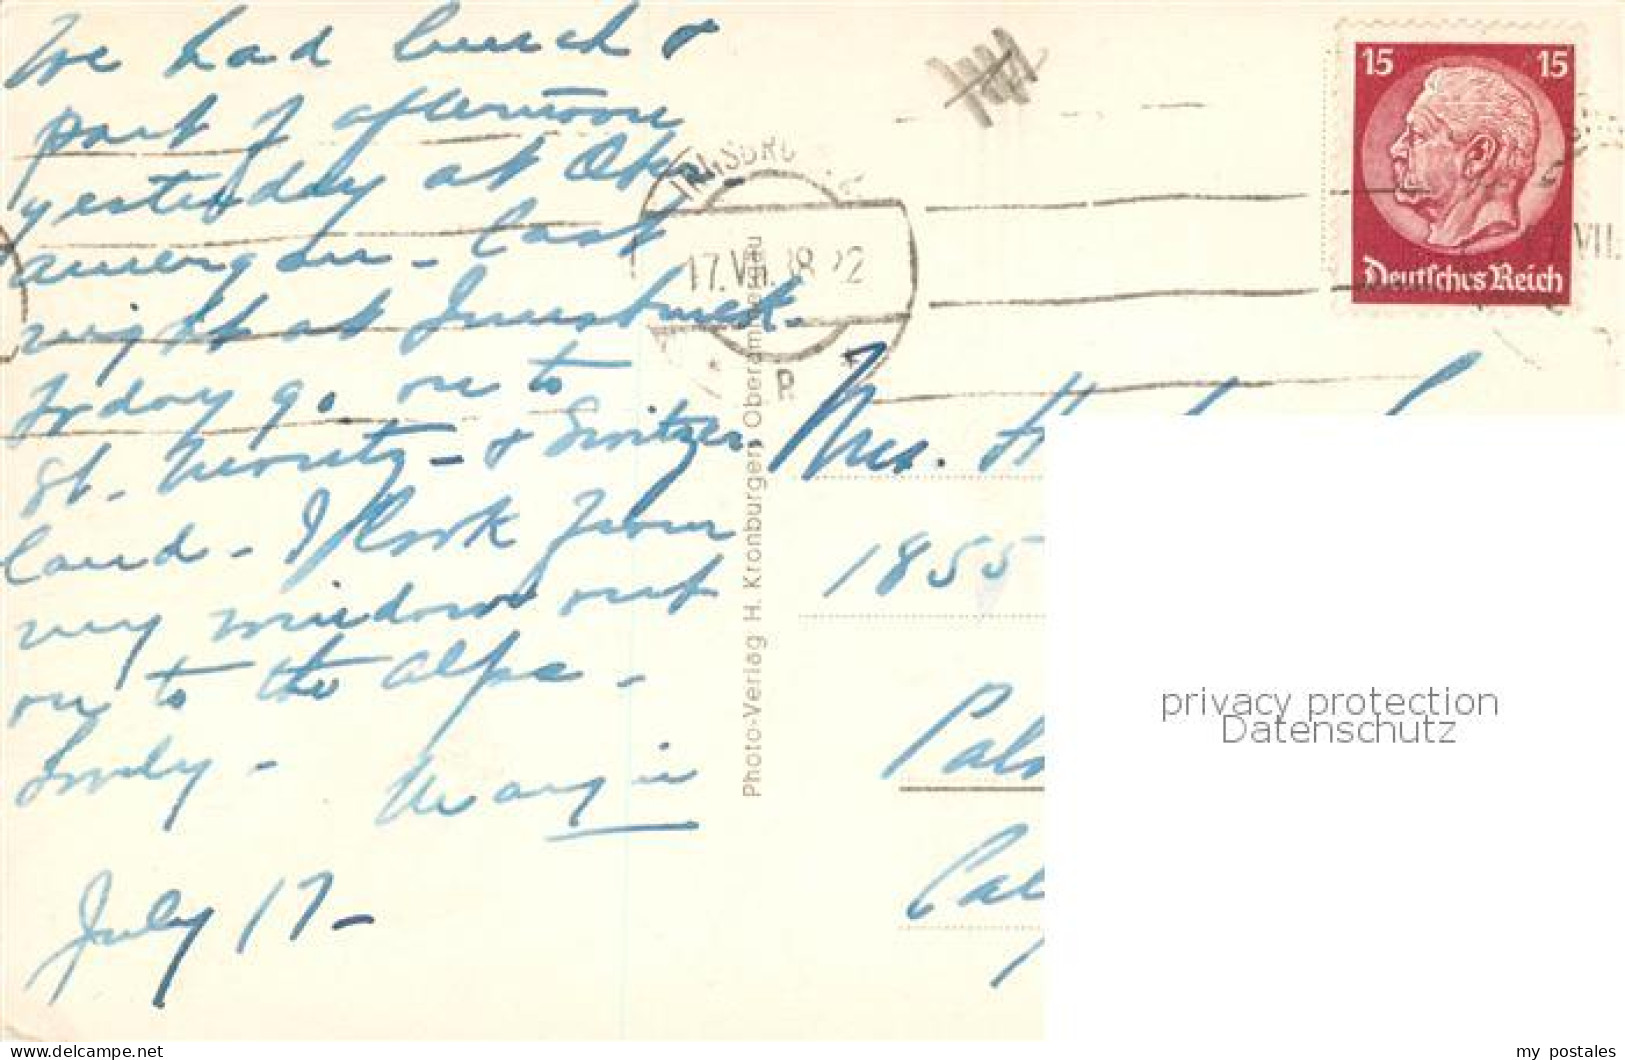 We had lunch &
part of afternoon
yesterday at Ober-
amergau - last
night at Innsbruck.
Today go on to
St. Moritz - & Switzer
land - I look from
my window out
on to the Alps -
Lovely -
Margie
July 17 -
Photo-Verlag H. Kronburger, Oberammergau
INNSBRU
17.VII.38 22
15 15
Deutsches Reich
VII.
Mrs. H
1855
Pal
Cal
privacy protection
Datenschutz
my postales
©delcampe.net/bartko-reher.com